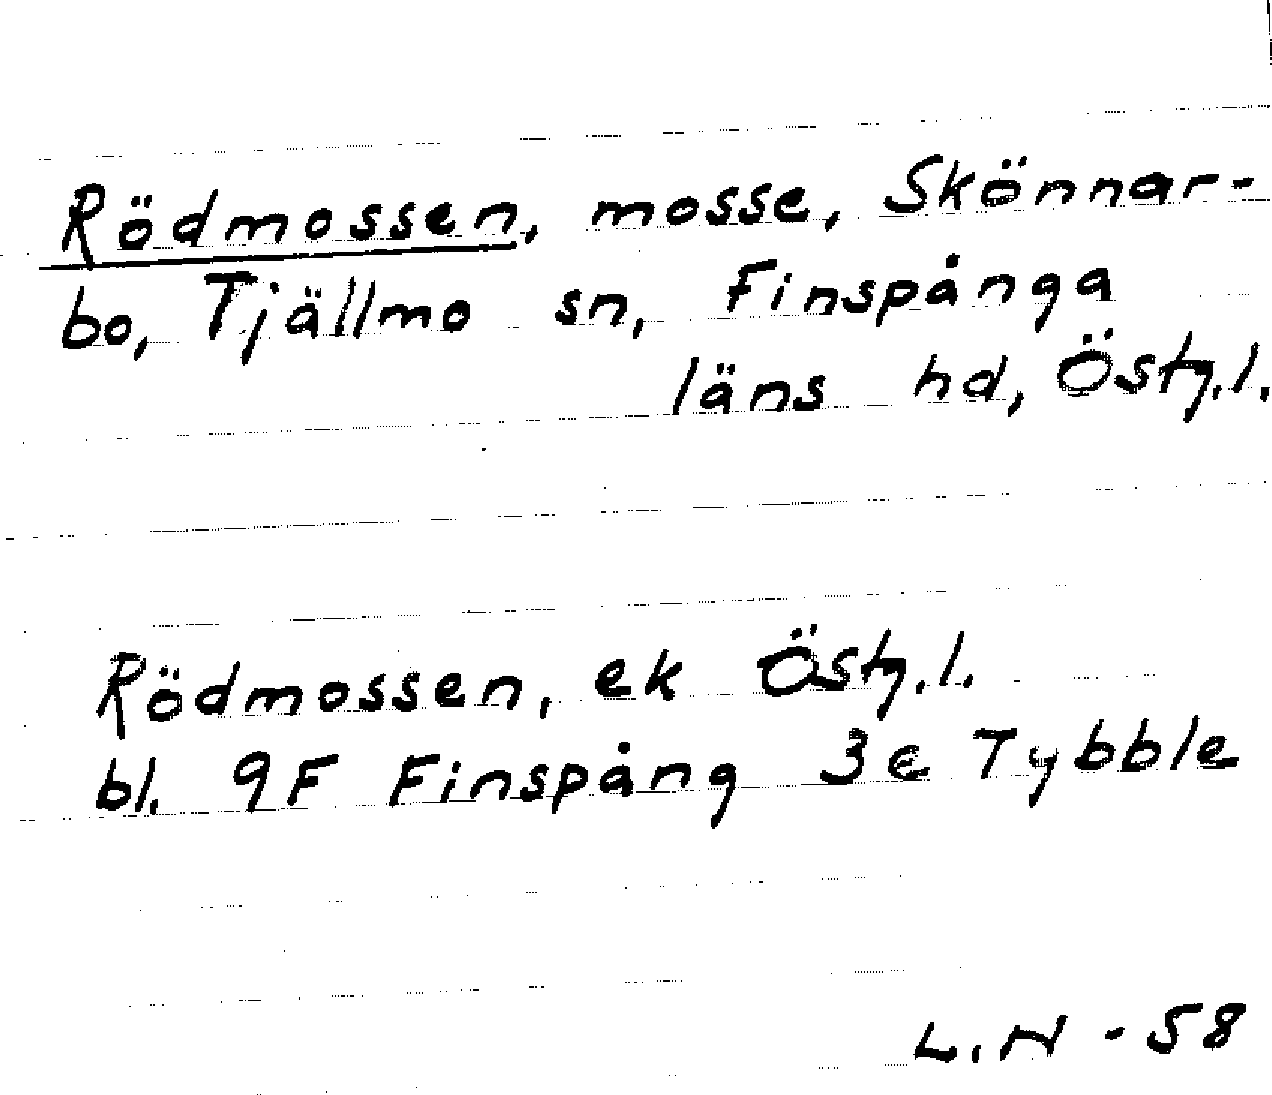 Rödmossen, mosse, Skönnar-
bo, Tjällmo sn, Finspånga
läns hd, Östg.l.
Rödmossen, ek Östg.l.
bl. 9F Finspång 3e Tybble
L.N - 58